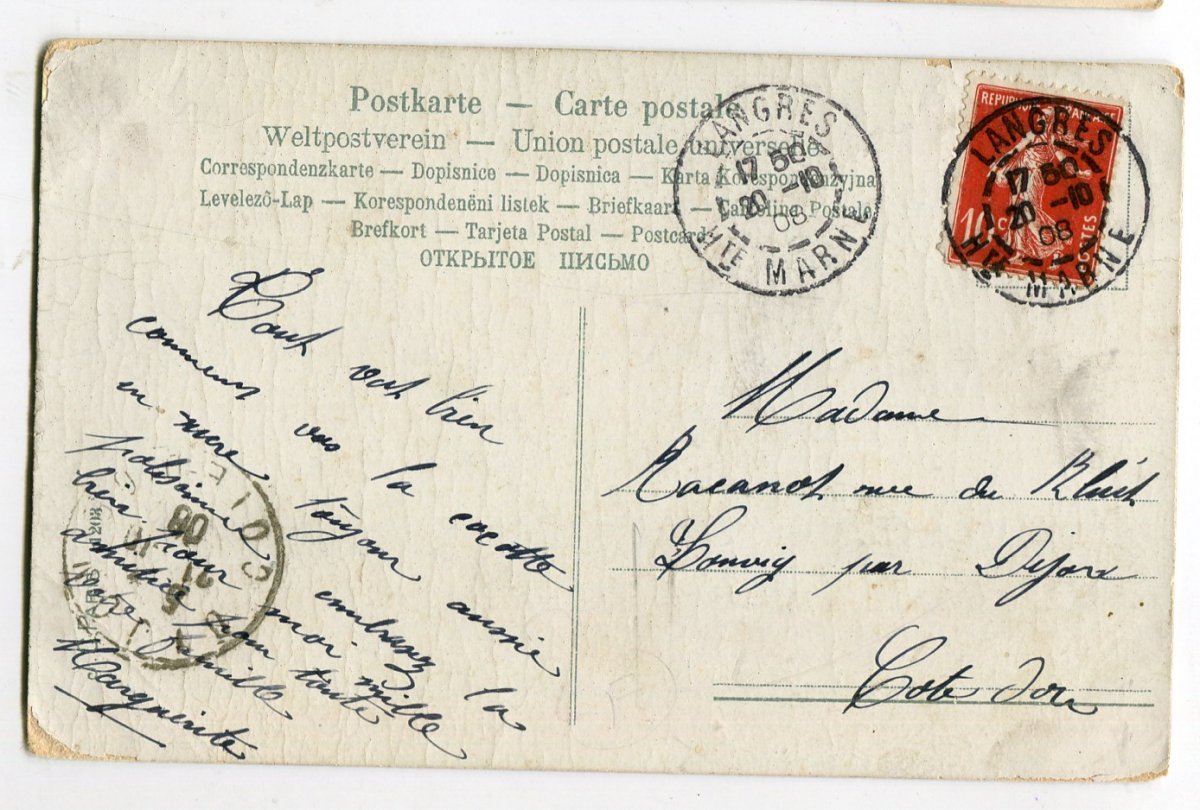 Postkarte — Carte postale
Weltpostverein — Union postale universelle
Correspondenzkarte — Dopisnice — Dopisnica — Karta Korespondenzyjna
Levelezô-Lap — Korespondenëni listek — Briefkaart — Cartolina Postale
Brefkort — Tarjeta Postal — Postcard
ОТКРЫТОЕ ПИСЬМО
LANGRES
17 50
20 -10
08
HTE MARNE
REPUBLIQUE FRANÇAISE
10 c
POSTES
LANGRES
17 50
20 -10
08
HTE MARNE
Tout vat bien
commens vas la cocotte
un mere toujour aussie
bien. pour embrasez la
moi mille
amitiés pour toute
votre famille
Marguerite
Madame
Racanot rue du
par Dijon
Cote d'or